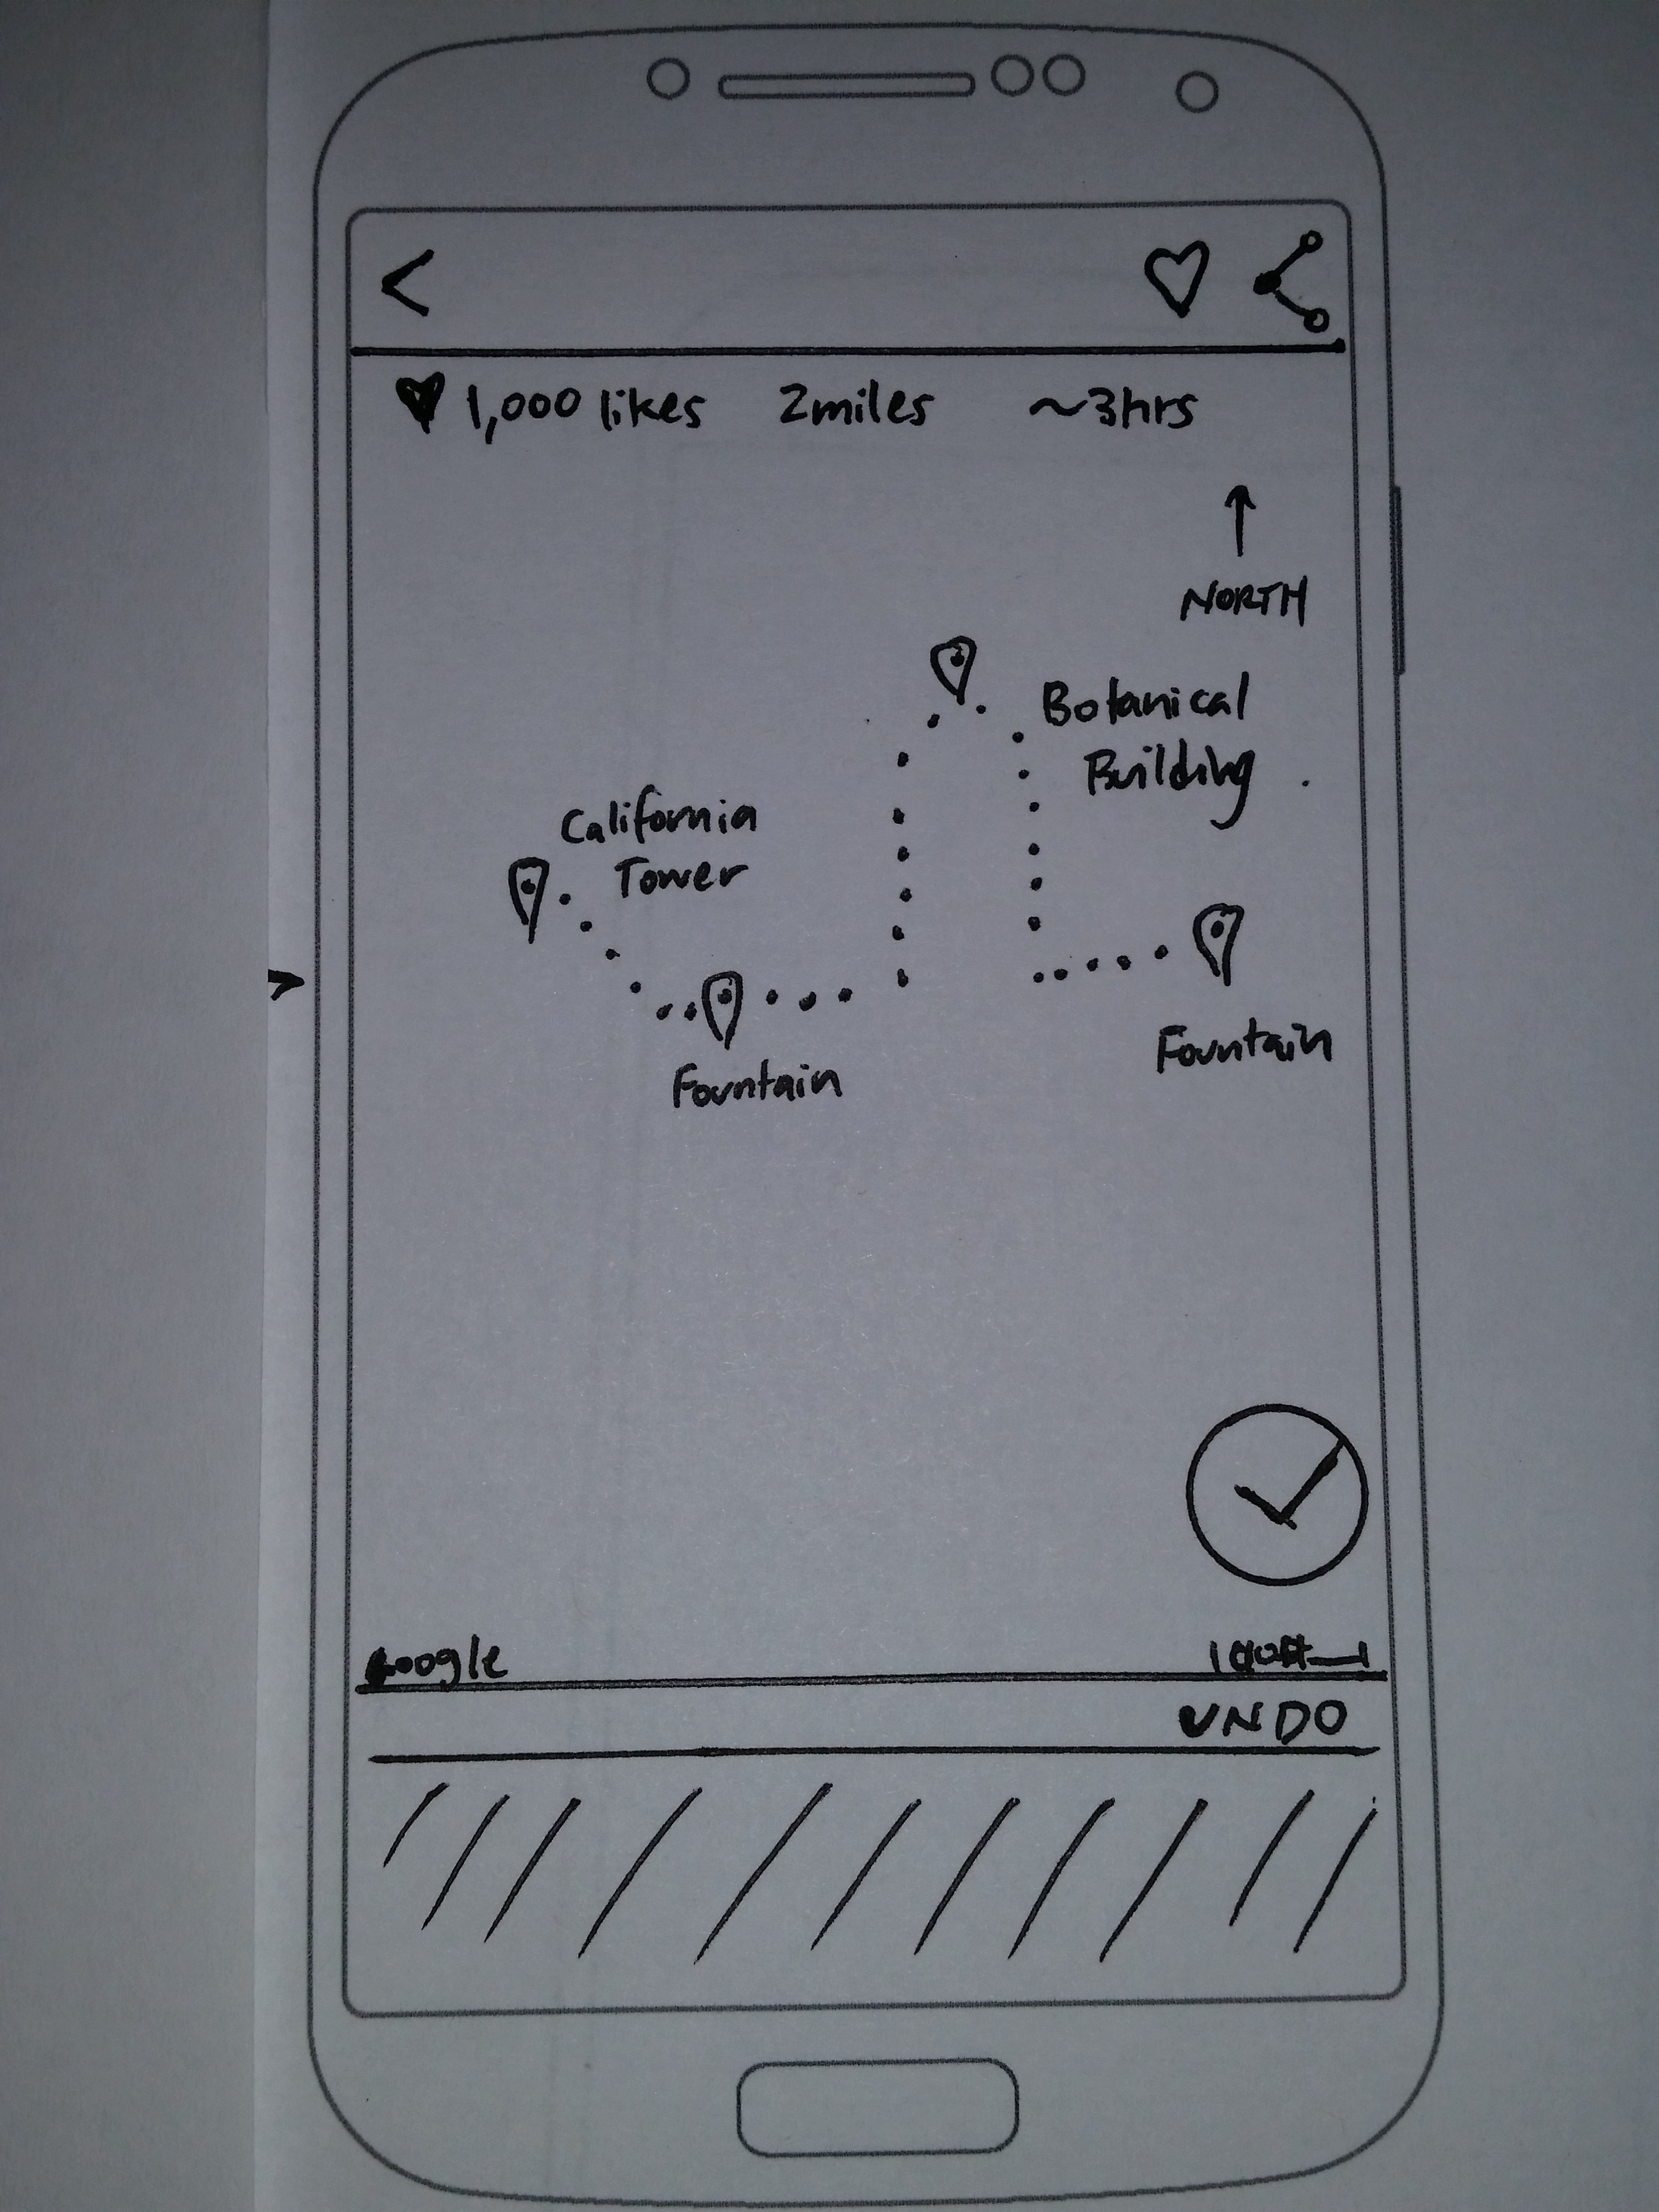 1,000 likes 2miles ~3hrs
NORTH
Botanical
Building
California
Tower
Fountain
Fountain
Google
UNDO